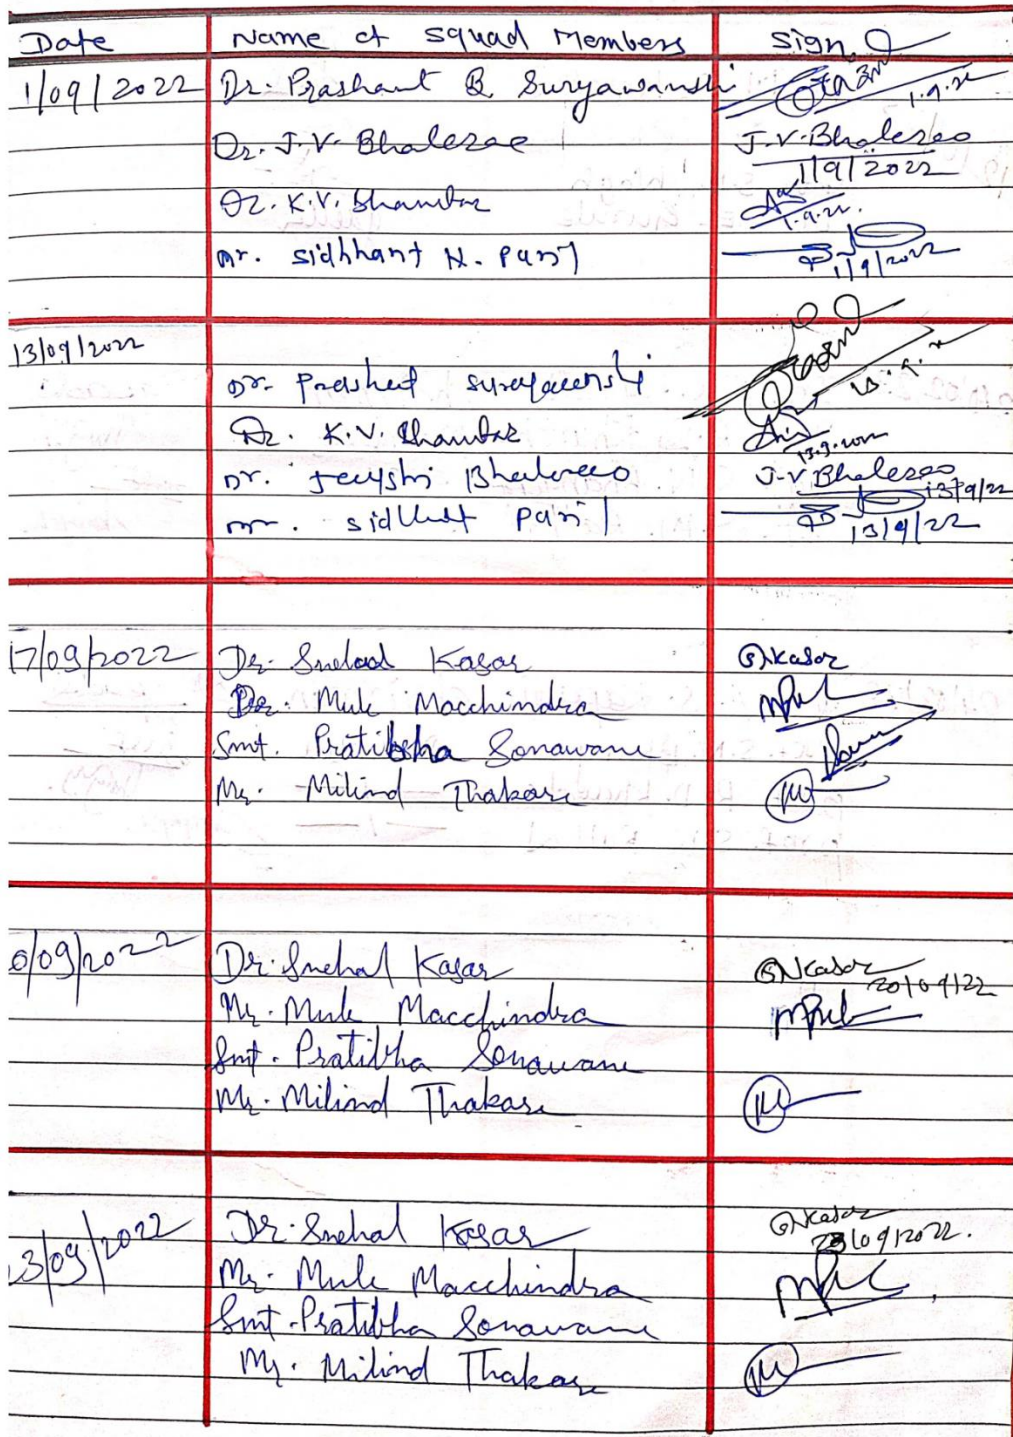 Date Name of Squad Members Sign.
1/09/2022 Dr. Prashant B. Suryawanshi 1.9.22
Dr. J.V. Bhalerao J.V. Bhalerao
1/9/2022
Dr. K.V. Bhambar 1.9.22.
Mr. Sidhhant N. Patil 1/9/2022
13/09/2022
Dr. Prashant Suryawanshi 13.9.22
Dr. K.V. Bhambar 13.9.2022
Dr. Jayshri Bhalerao J.V. Bhalerao 13/9/22
Mr. Sidhhat Patil 13/9/22
17/09/2022 Dr. Snehal Kasar S.Kasar
Dr. Mule Macchindra
Smt. Pratibha Sonawane
Mr. Milind Thakare
0/09/2022 Dr. Snehal Kasar SNKasar 20/09/22
Mr. Mule Macchindra
Smt. Pratibha Sonawane
Mr. Milind Thakare
3/09/2022 Dr. Snehal Kasar SNKasar
23/09/2022.
Mr. Mule Macchindra
Smt. Pratibha Sonawane
Mr. Milind Thakare